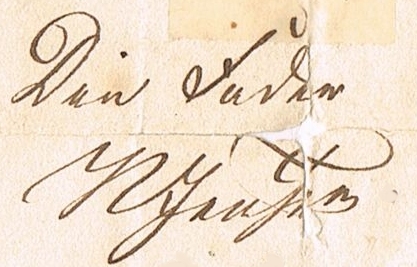 Din Fader
N Jensen